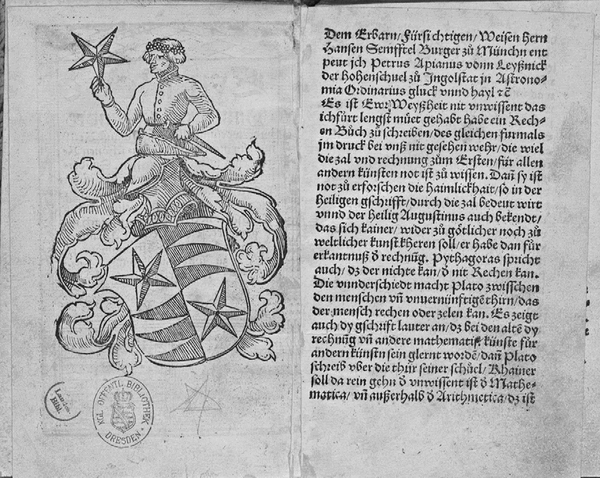 KGL. ÖFFENTL. BIBLIOTHEK
DRESDEN
Dem Erbarn/ Fürsichtigen/ Weisen hern
Hansen Semfftel Burger zů Münchn ent
peut jch Petrus Apianus vonn Leyßnick
der Hohenschuel zů Jngolstat jn Astrono-
mia Ordinarius gluck vnnd hayl ꝛc̄
Es ist Ewr Weyßheit nit vnwissent das
ich fürt lengst můet gehabt habe ein Rech-
en Bůch zů schreiben/ des gleichen furmals
jm druck bei vnß nit gesehen wehr/ die wiel
die zal vnd rechnung zům Ersten/ für allen
andern künsten not ist zů wissen. Dañ sy ist
not zů erforschen die haimlickhait/ so in der
heiligen gschrifft/ durch die zal bedeut wirt
vnnd der heilig Augustinus auch bekendt/
das sich kainer/ wider zů götlicher noch zů
weltlicher kunst kheren soll/ er habe dan für
erkantnuß ð rechnūg. Pythagoras spricht
auch/ dz der nichte kan/ ð nit Rechen kan.
Die vnnderschiedt macht Plato zwisschen
den menschen vñ vnuernünftigē thirn/ das
der mensch rechen oder zelen kan. Es zeigt
auch dy gschrift lauter an/ dz bei den altē dy
rechnūg vñ andere mathematisē künste für
andern künstn sein glernt wordē/ dañ Plato
schreib vber die thür seiner schůel/ Khainer
soll da rein gehn ð vnwissent ist ð Mathe-
matica/ vñ außerhalb ð Arithmetica/ dz ist